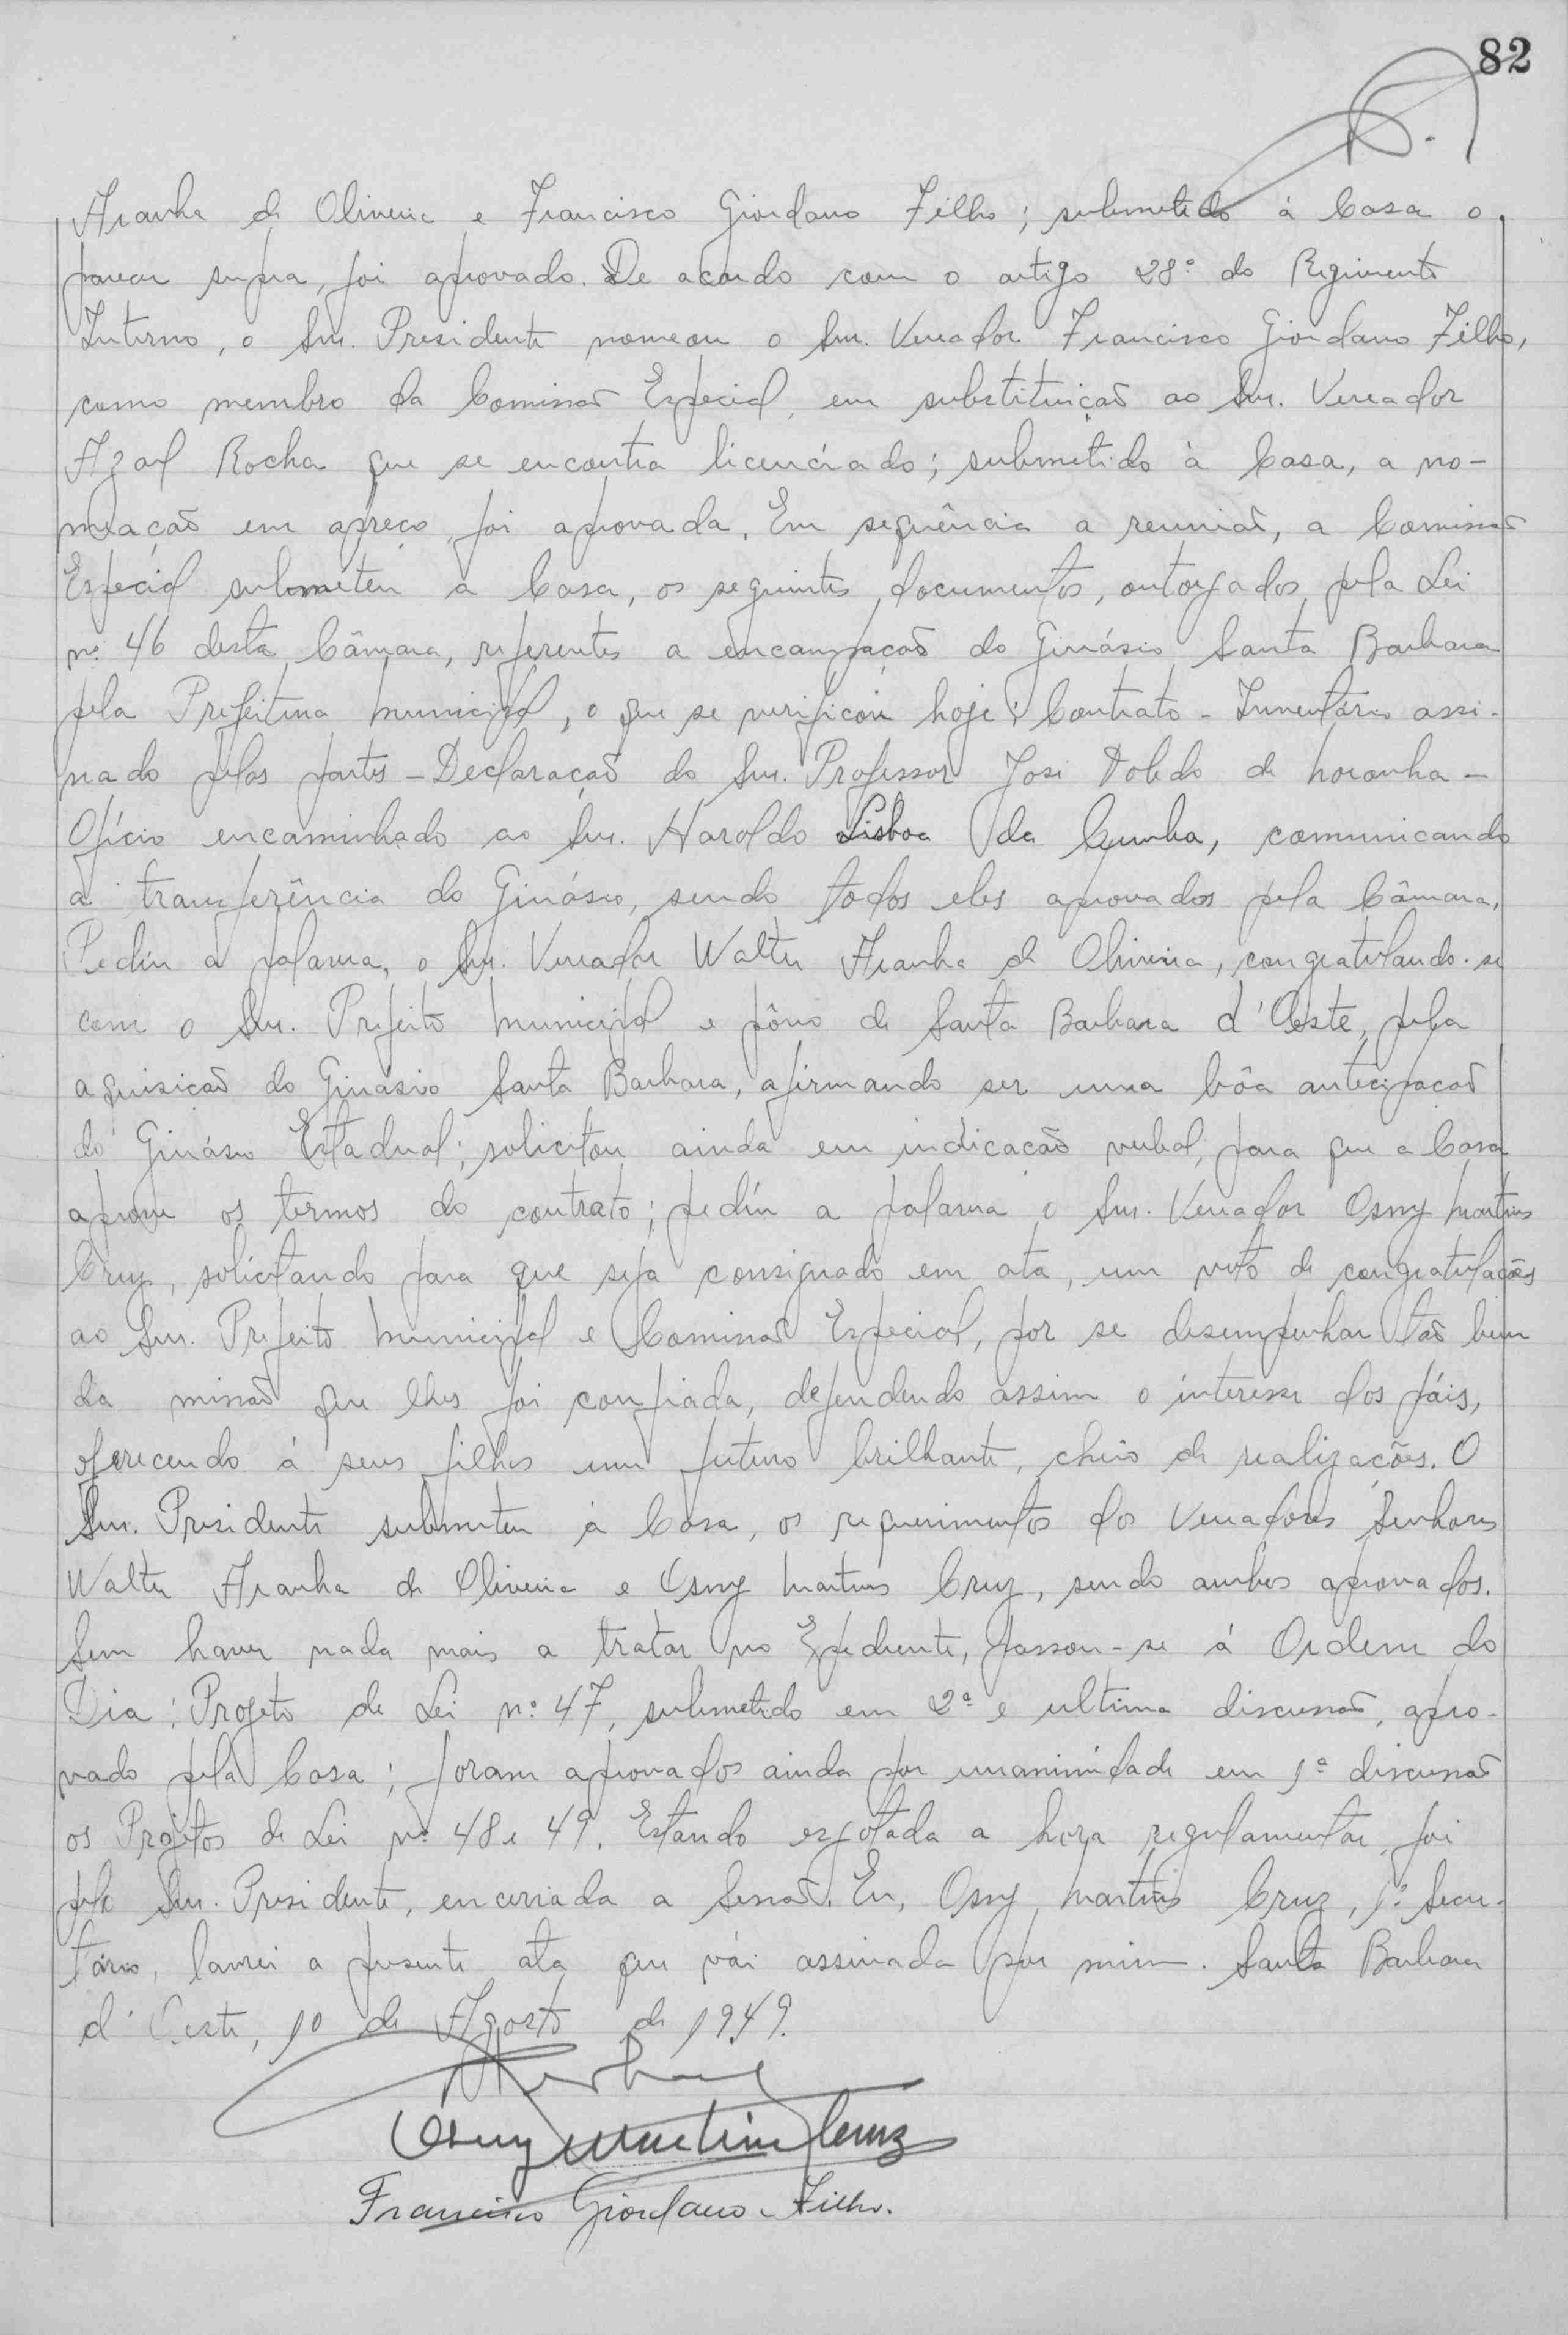 82
Aranha de Oliveira e Francisco Giordano Filho; submetido à Casa o
parecer supra, foi aprovado. De acordo com o artigo 28º do Regimento
Interno, o Snr. Presidente nomeou o Snr. Vereador Francisco Giordano Filho,
como membro da Comissão Especial, em substituição ao Snr. Vereador
Azael Rocha que se encontra licenciado; submetido à Casa, a no-
meação em apreço foi aprovada. Em sequência a reunião, a Comissão
Especial submeteu a Casa, os seguintes documentos, outorgados pela Lei
nº 46 desta Câmara, referentes a encampação do Ginásio Santa Barbara
pela Prefeitura Municipal, o que se verificou hoje: Contrato - Inventário assi-
nado pelas partes - Declaração do Snr. Professor José Toledo de Noronha -
Ofício encaminhado ao Snr. Haroldo Lisboa da Cunha, comunicando
a transferência do Ginásio, sendo todos eles aprovados pela Câmara.
Pediu a palavra, o Snr. Vereador Walter Aranha de Oliveira, congratulando-se
com o Snr. Prefeito Municipal e pôvo de Santa Barbara d'Oeste, pela
aquisicão do Ginásio Santa Barbara, afirmando ser uma bôa antecipacão
do Ginásio Estadual; solicitou ainda em indicacão verbal, para que a Casa
aprove os termos do contrato; pediu a palavra o Snr. Vereador Osny Martins
Cruz, solicitando para que seja consignado em ata, um voto de congratulações
ao Snr. Prefeito Municipal e Comissão Especial, por se desempenhar tão bem
da missão que lhes foi confiada, defendendo assim o interesse dos páis,
oferecendo á seus filhos um futuro brilhante, cheio de realizações. O
Snr. Presidente submeteu à Casa, os requerimentos dos Vereadores Senhores
Walter Aranha de Oliveira e Osny Martins Cruz, sendo ambos aprovados.
Sem haver nada mais a tratar no Expediente, passou-se á Ordem do
Dia: Projeto de Lei nº 47, submetido em 2ª e ultima discussão, apro-
vado pela Casa; foram aprovados ainda por unanimidade em 1ª discussão
os Projetos de Lei nº 48 e 49. Estando esgotada a hora regulamentar, foi
pelo Snr. Presidente, encerrada a Sessão. Eu, Osny Martins Cruz, 1º Secre-
tário, lavrei a presente ata que vái assinada por mim. Santa Barbara
d'Oeste, 10 de Agosto de 1949.
Osny Martins Cruz
Francisco Giordano Filho.